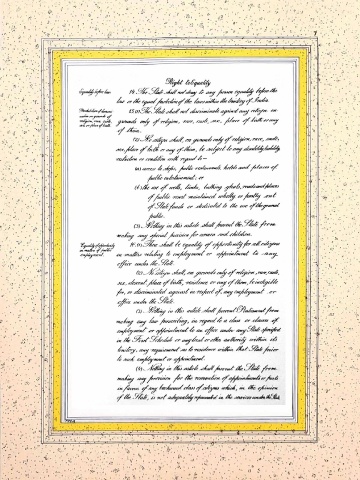 Right to Equality
Equality before law.
14. The State shall not deny to any person equality before the
law or the equal protection of the laws within the territory of India.
Prohibition of discri-
mination on grounds of
religion, race, caste,
sex or place of birth.
15. (1) The State shall not discriminate against any citizen on
grounds only of religion, race, caste, sex, place of birth or any
of them.
(2) No citizen shall, on grounds only of religion, race, caste,
sex, place of birth or any of them, be subject to any disability, liability,
restriction or condition with regard to—
(a) access to shops, public restaurants, hotels and places of
public entertainment; or
(b) the use of wells, tanks, bathing ghats, roads and places
of public resort maintained wholly or partly out
of State funds or dedicated to the use of the general
public.
(3) Nothing in this article shall prevent the State from
making any special provision for women and children.
Equality of opportunity
in matters of public
employment.
16. (1) There shall be equality of opportunity for all citizens
in matters relating to employment or appointment to any
office under the State.
(2) No citizen shall, on grounds only of religion, race, caste,
sex, descent, place of birth, residence or any of them, be ineligible
for, or discriminated against in respect of, any employment or
office under the State.
(3) Nothing in this article shall prevent Parliament from
making any law prescribing, in regard to a class or classes of
employment or appointment to an office under any State specified
in the First Schedule or any local or other authority within its
territory, any requirement as to residence within that State prior
to such employment or appointment.
(4) Nothing in this article shall prevent the State from
making any provision for the reservation of appointments or posts
in favour of any backward class of citizens which, in the opinion
of the State, is not adequately represented in the services under the State.